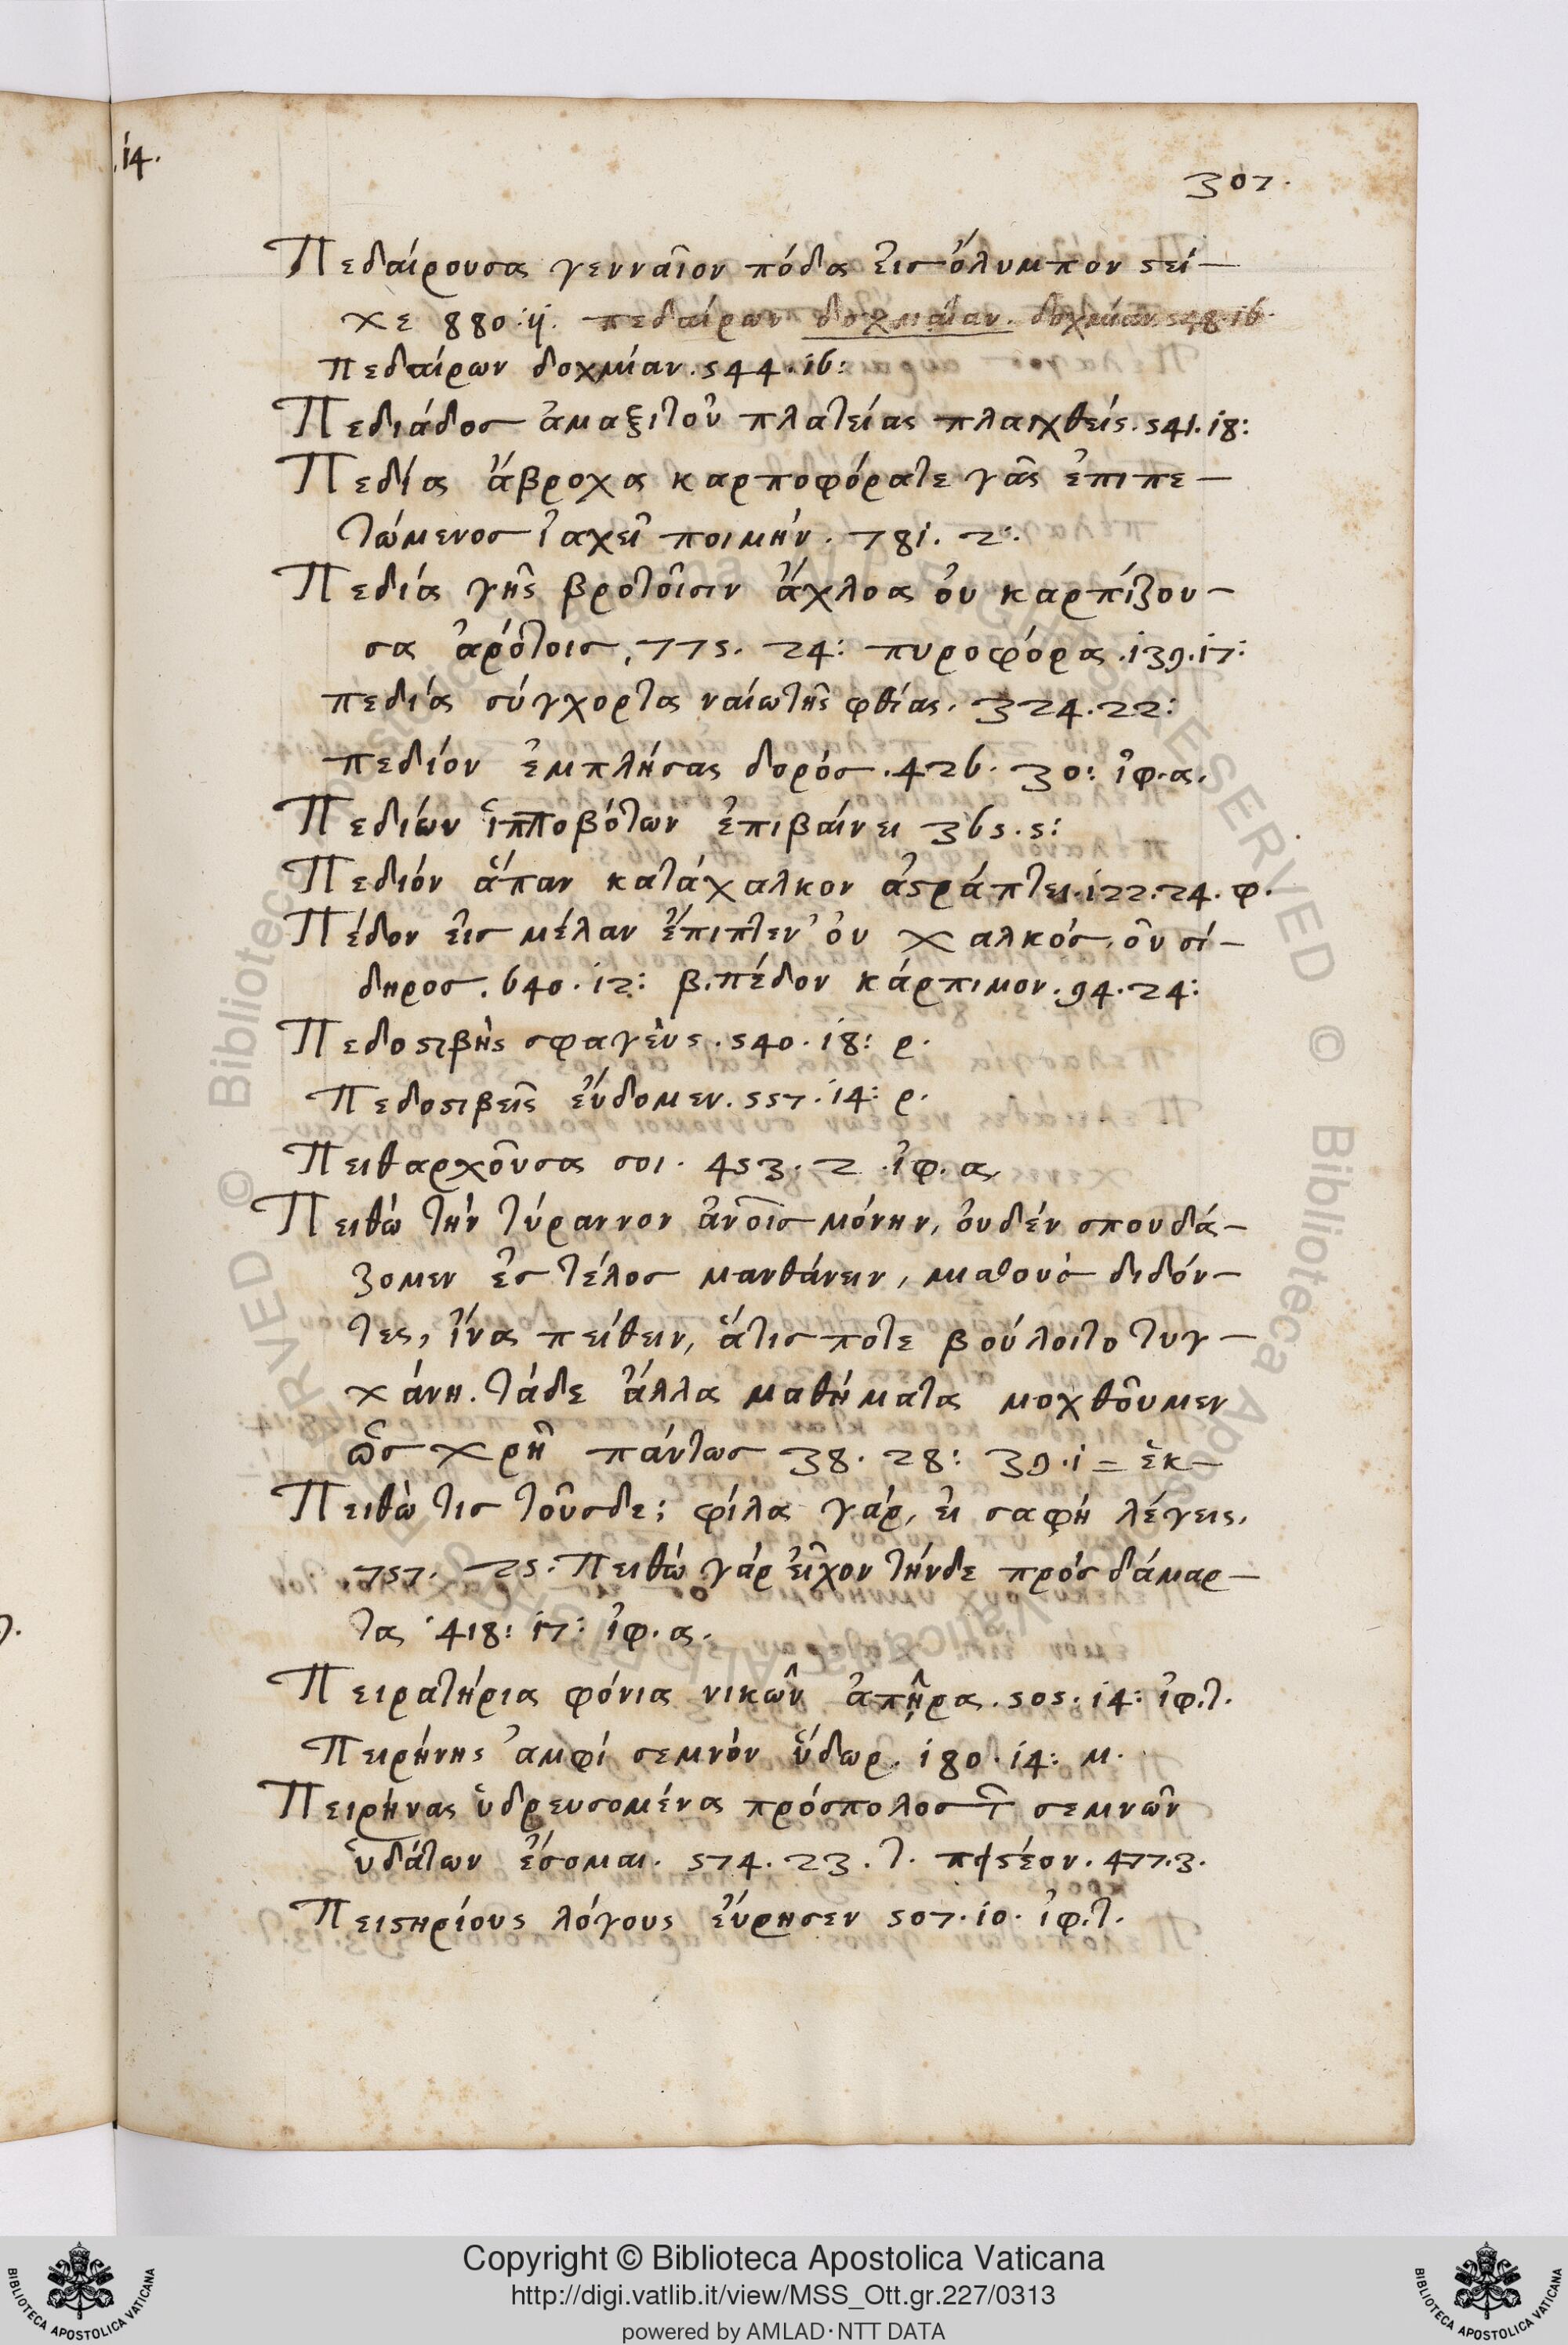 .14.
307.
Πεδαίρουσα γενναῖον πόδα εἰς ὄλυμπον ϛεί-
χε 880.ij. πεδαίρων δοχμαίαν. δοχμίαν. 548.16.
πεδαίρων δοχμίαν. 544. 16:
Πεδιάδος ἁμαξιτοῦ πλατείας πλαγχθείς. 541. 18:
Πεδία ἄβροχα καρποφόρατε γᾶς ἐπιπε-
τώμενος ἰαχεῖ ποιμήν. 781. 2:
Πεδία γῆς βροτοῖσιν ἄχλοα οὐ καρπίζου-
σα ἀρότοις, 775. 24: πυροφόρα. 139. 17:
πεδία σύγχορτα ναίω τῆς φθίας. 324. 22:
πεδίον ἐμπλήσας δορός. 426. 30: ἰφ. α.
Πεδίων ἱπποβότων ἐπιβαίνει 365. 5:
Πεδιόν ἅπαν κατάχαλκον ἀϛράπτει. 122. 24. φ.
Πέδον εἰς μέλαν ἔπιπτεν οὐ χαλκός, οὐ σί-
δηρος. 640. 12: β. πέδον κάρπιμον. 94. 24:
Πεδοϛιβὴς σφαγεὺς. 540. 18: ρ.
Πεδοϛιβεῖς εὕδομεν. 557. 14: ρ.
Πειθαρχοῦσα σοι. 453. 2. ἰφ. α.
Πειθὼ τὴν τύραννον ἀνοις μόνην, οὐδέν σπουδά-
ζομεν ἐς τέλος μανθάνειν, μισθοὺς διδόν-
τες, ἵνα πείθειν, ἅτις ποτε βούλοιτο τυγ-
χάνη. τάδε ἄλλα μαθήματα μοχθοῦμεν
ὡς χρῆ πάντως 38. 28: 39. 1 = ἑκ-
Πειθὼ τις τοῦσδε; φίλα γάρ, εἰ σαφή λέγεις.
757. 25: Πειθὼ γάρ εἶχον τήνδε πρός δάμαρ-
τα 418: 17: ἰφ. α.
Πειρατήρια φόνια νικῶν ἀπῆρα. 505. 14: ἰφ. τ.
Πειρήνης ἀμφί σεμνὸν ὕδωρ. 180. 14: μ.
Πειρήνας ὑδρευσομένα πρόσπολος τ σεμνῶν
ὑδάτων ἔσομαι. 574. 23. τ. 477. 3.
Πειϛηρίους λόγους εὕρησεν 507. 10. ἰφ. τ.
Copyright © Biblioteca Apostolica Vaticana
http://digi.vatlib.it/view/MSS_Ott.gr.227/0313
powered by AMLAD·NTT DATA